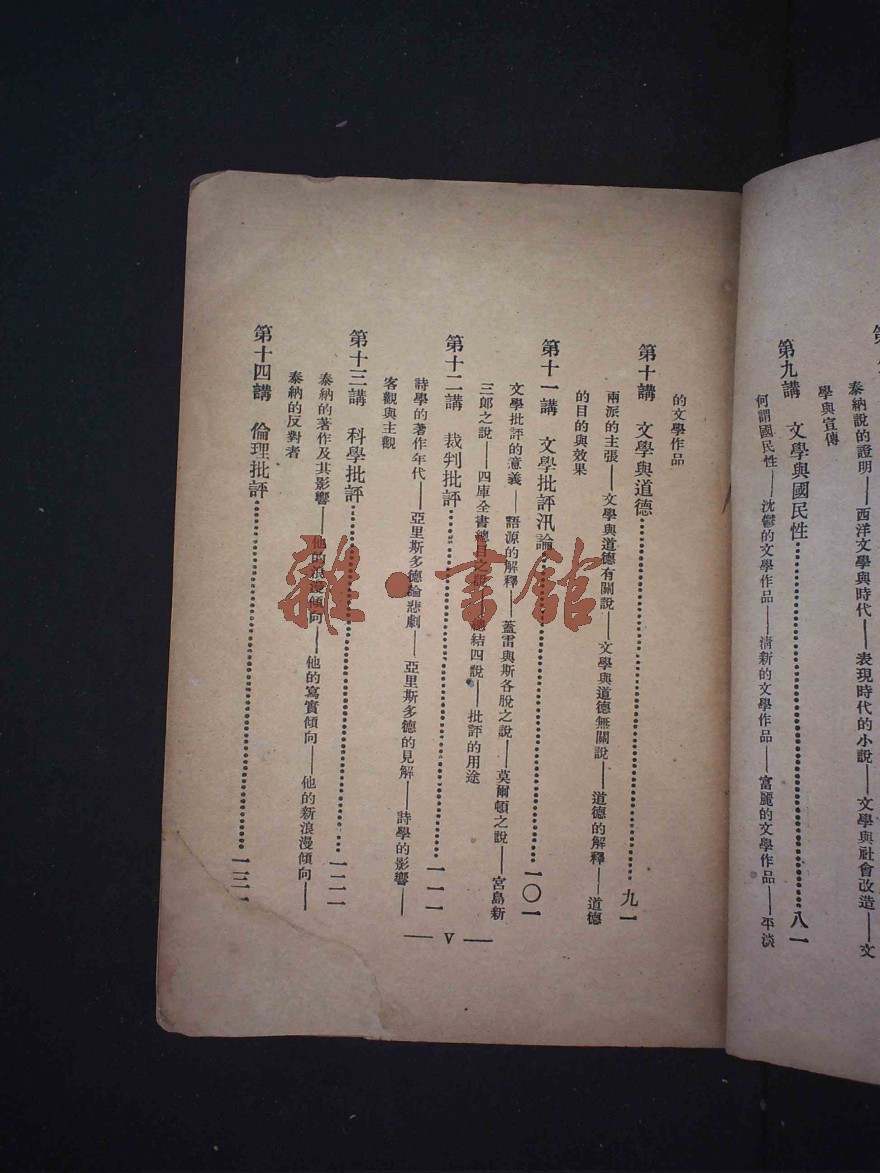 泰納說的證明——西洋文學與時代——表現時代的小說——文學與社會改造——文
學與宣傳
第九講　文學與國民性…………八一
何謂國民性——沈鬱的文學作品——清新的文學作品——富麗的文學作品——平淡
的文學作品
第十講　文學與道德…………九一
兩派的主張——文學與道德有關說——文學與道德無關說——道德的解釋——道德
的目的與效果
第十一講　文學批評汎論…………一〇一
文學批評的意義——語源的解釋——蓋雷與斯各脫之說——莫爾頓之說——宮島新
三郎之說——四庫全書總目之說——總結四說——批評的用途
第十二講　裁判批評…………一一一
詩學的著作年代——亞里斯多德論悲劇——亞里斯多德的見解——詩學的影響——
客觀與主觀
第十三講　科學批評…………一二一
泰納的著作及其影響——他的浪漫傾向——他的寫實傾向——他的新浪漫傾向——
泰納的反對者
第十四講　倫理批評…………一三一
— V —
雜·書館